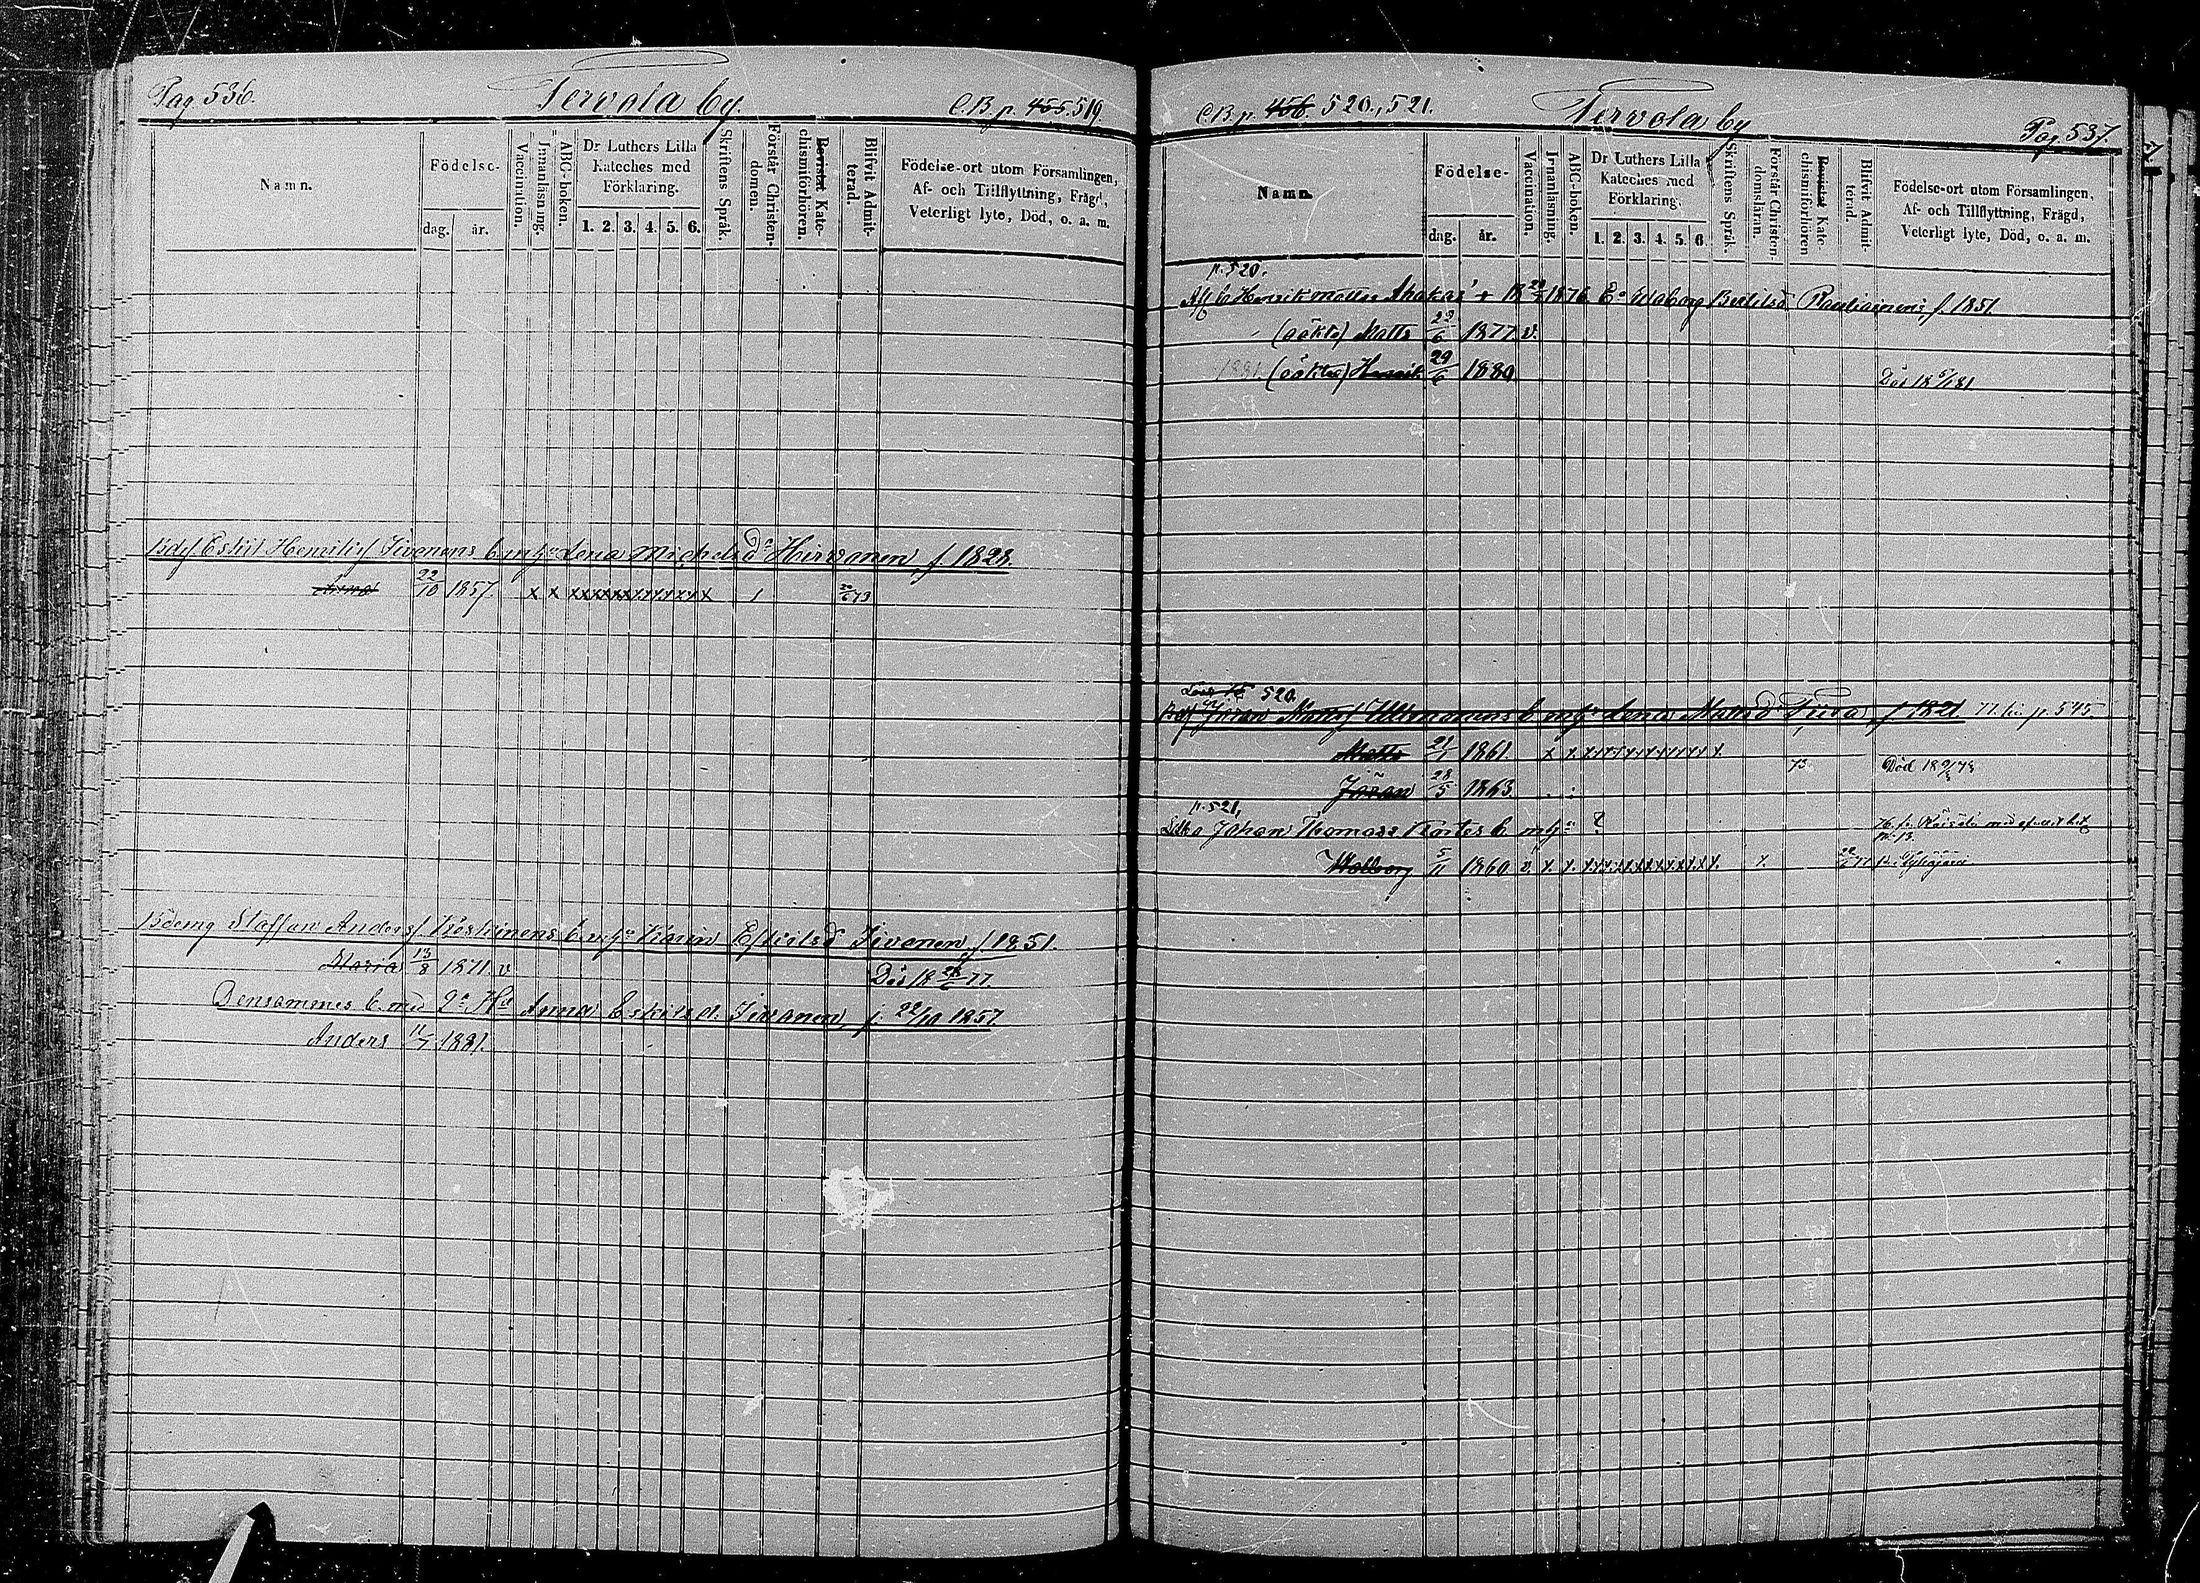 Pag 536.
Tervola by.
C.B. p. 455. 519.
Namn.
Födelse-
dag.
år.
Vaccination.
Innanläsning.
ABC-boken.
Dr Luthers Lilla
Kateches med
Förklaring.
1. 2. 3. 4. 5. 6.
Skriftens Språk.
Förstår Christen-
domen.
Bevistat Kate-
chismiförhören.
Blifvit Admit-
terad.
Födelse-ort utom Församlingen,
Af- och Tillflyttning, Frägd,
Veterligt lyte, Död, o. a. m.
Bdf Eskil Hemmis Iivonens b. m. h:u Lena Michelsd:r Hirvonen, f. 1828.
Anna 22/10 1857. x x xxxxxxxxxxxx 1 73
Staffan Anders Koskinens b. m. h:u Karin Eskilsd Iivonen, f. 1851.
Maria 13/8 1871. v Död 18 77.
Densammes b. med 2:a H:u Anna Eskilsd. Iivonen, f. 22/10 1857.
Anders 1881.
C.B. p. 456. 520., 521.
Tervola by
Pag. 537.
Namn.
Födelse-
dag.
år.
Vaccination.
Innanläsning.
ABC-boken.
Dr Luthers Lilla
Kateches med
Förklaring.
1. 2. 3. 4. 5. 6.
Skriftens Språk.
Förstår Christen-
domsläran.
Bevistat Kate
chismiförhören
Blifvit Admit-
terad.
Födelse-ort utom Församlingen,
Af- och Tillflyttning, Frägd,
Veterligt lyte, Död, o. a. m.
p. 520.
Henrik Matts 1876 E: Walborg Bertilsd f. 1851.
(oäkta) Matts 23/6 1877. v.
1881. (oäkta) Henrik 29/6 1880. Död 18 81
520.
Bdf Jöran Matts b. m. h:u Lena Mattsd f. 1821 p. 545.
Matts 21/1 1861. x x xxxxxxxxxxxx
73. Död 18 73
Jöran 28/5 1863.
p. 521,
Johan Thomass b. m. h:u ?
Walborg 5/11 1860 v. x. x. xxxxxxxxxxxx x. 77